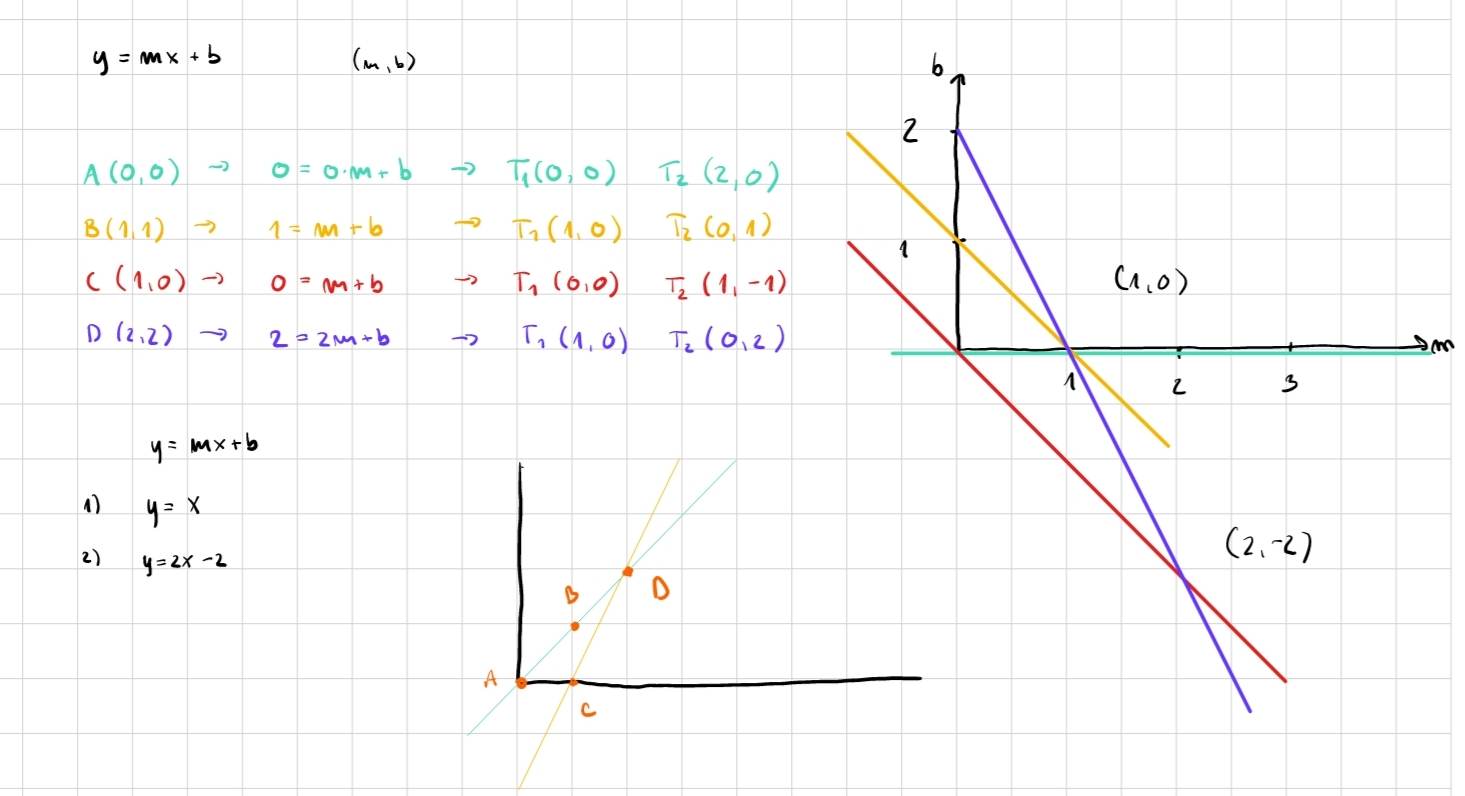 y = mx + b (m,b)
A (0,0) → 0 = 0·m + b → T₁(0,0) T₂ (2,0)
B (1,1) → 1 = m + b → T₁ (1,0) T₂ (0,1)
C (1,0) → 0 = m + b → T₁ (0,0) T₂ (1,-1)
D (2,2) → 2 = 2m + b → T₁ (1,0) T₂ (0,2)
y = mx + b
1) y = x
2) y = 2x - 2
B
D
A
C
b
2
1
(1,0)
m
1 2 3
(2,-2)